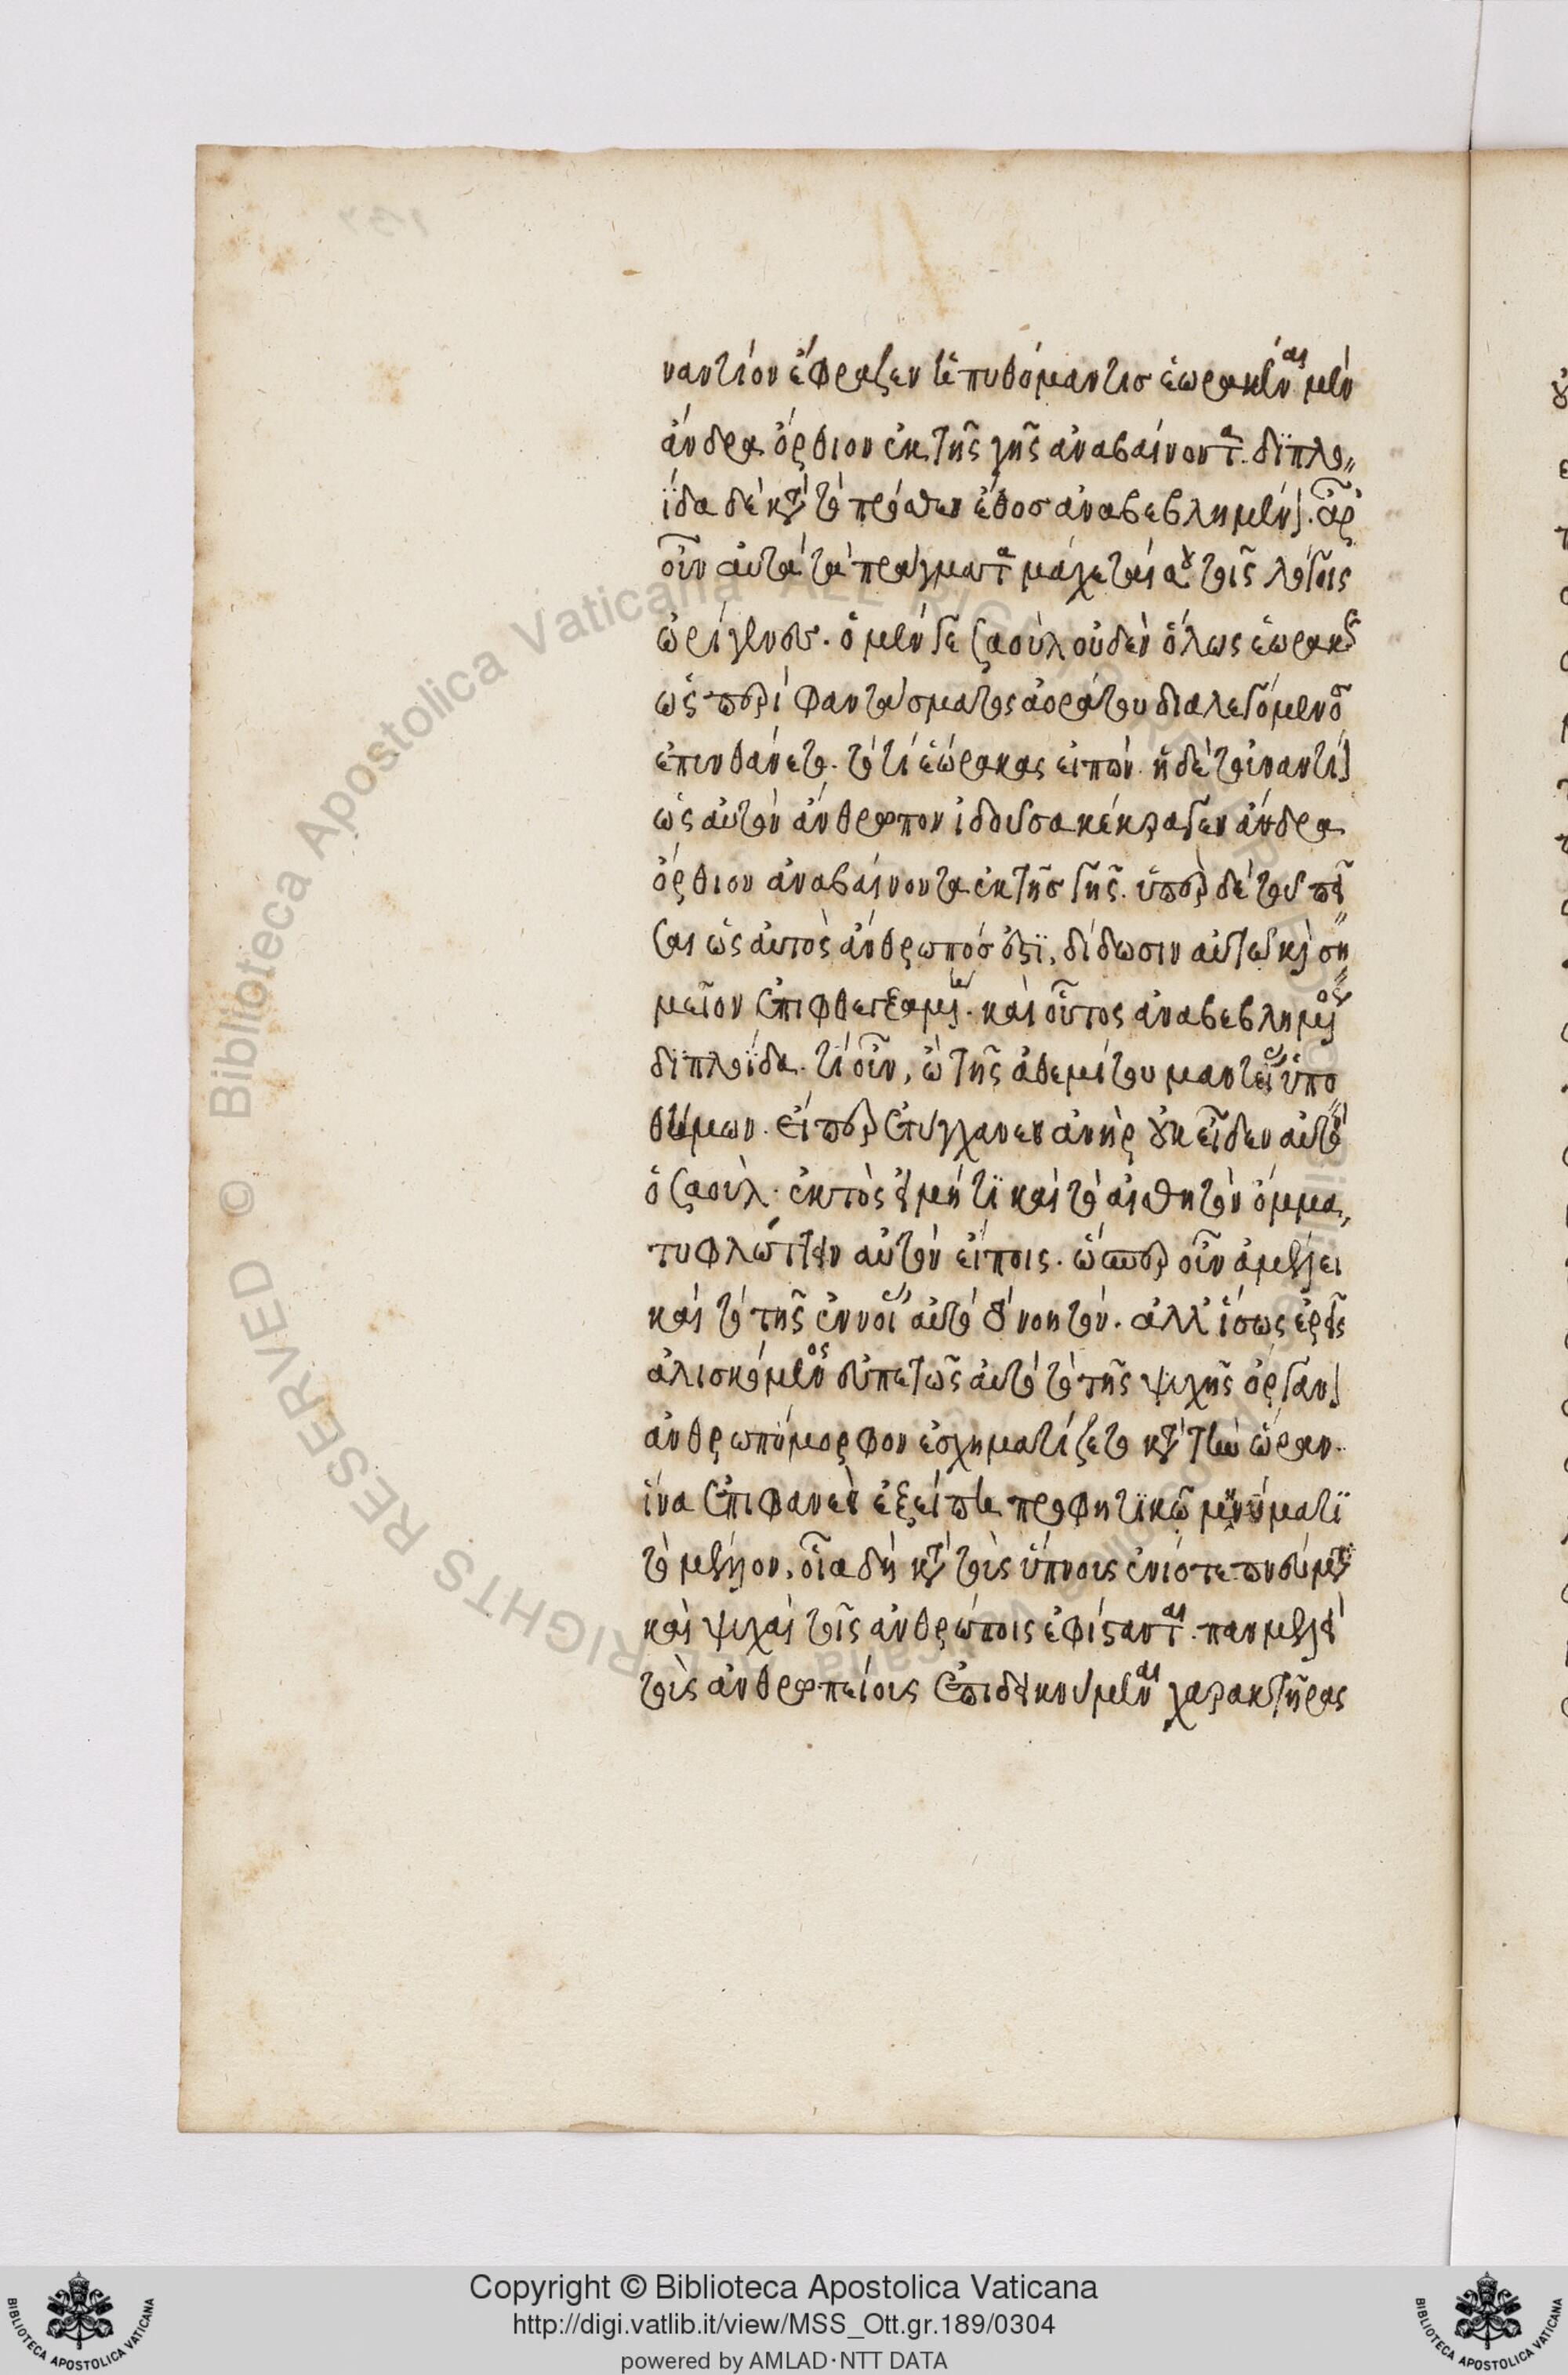 ναντίον ἔφραζεν ἡ πυθόμαντις ἑωρακέναι μὲν
ἄνδρα ὄρθιον ἐκ τῆς γῆς ἀναβαίνοντα. διπλο
ΐδα δὲ κατὰ τὸ πρόσθεν ἔθος ἀναβεβλημένον. ἆρ
οὖν αὐτὰ τὰ πράγματα μάχεται σου τοῖς λόγοις
ὠρίγενες. ὁ μέν γε σαοὺλ οὐδὲν ὅλως ἑωρακὼς
ὡς περὶ φαντάσματος ἀοράτου διαλεγόμενος
ἐπυνθάνετο. τὸ τί ἑώρακας εἰπών. ἡ δὲ τοὐναντίον
ὡς αὐτὸν ἄνθρωπον ἰδοῦσα κέκραγεν ἄνδρα
ὄρθιον ἀναβαίνοντα ἐκ τῆς γῆς. ὑπὲρ δὲ τοῦ πεῖ
σαι ὡς αὐτὸς ἄνθρωπός ἐστι, δίδωσιν αὐτῷ καὶ ση
μεῖον ἐπιφθεγξαμένη. καὶ οὗτος ἀναβεβλημένος
διπλοΐδα. τί οὖν, ὦ τῆς ἀθεμίτου μαντείας ὑπο
εἴπερ ἐτύγχανεν ἀνὴρ οὐκ εἶδεν αὐτὸν
ὁ σαούλ. ἐκτὸς εἰ μή τι καὶ τὸ αἰσθητὸν ὄμμα
τυφλώττειν αὐτὸν εἴποις. ὥσπερ οὖν ἀμέλει
καὶ τὸ τῆς ἐννοίας αὐτοῦ νοητόν. ἀλλ' ἴσως ἐρεῖς
ἁλισκόμενος εὐπετῶς αὐτὸ τὸ τῆς ψυχῆς ὄργανον
ἀνθρωπόμορφον ἐσχηματίζετο κατὰ τὴν ὥραν.
ἵνα ἐπιφανὲν ἐξείποι προφητικῷ μηνύματι
τὸ μέλλον. οἷα δὴ κατὰ τοὺς ὕπνους ἐνίοτε πνεύματα
καὶ ψυχαὶ τοῖς ἀνθρώποις ἐφίστανται. πανμελεῖ
τοῖς ἀνθρωπείοις ἐπιδεικνύμεναι χαρακτῆρας